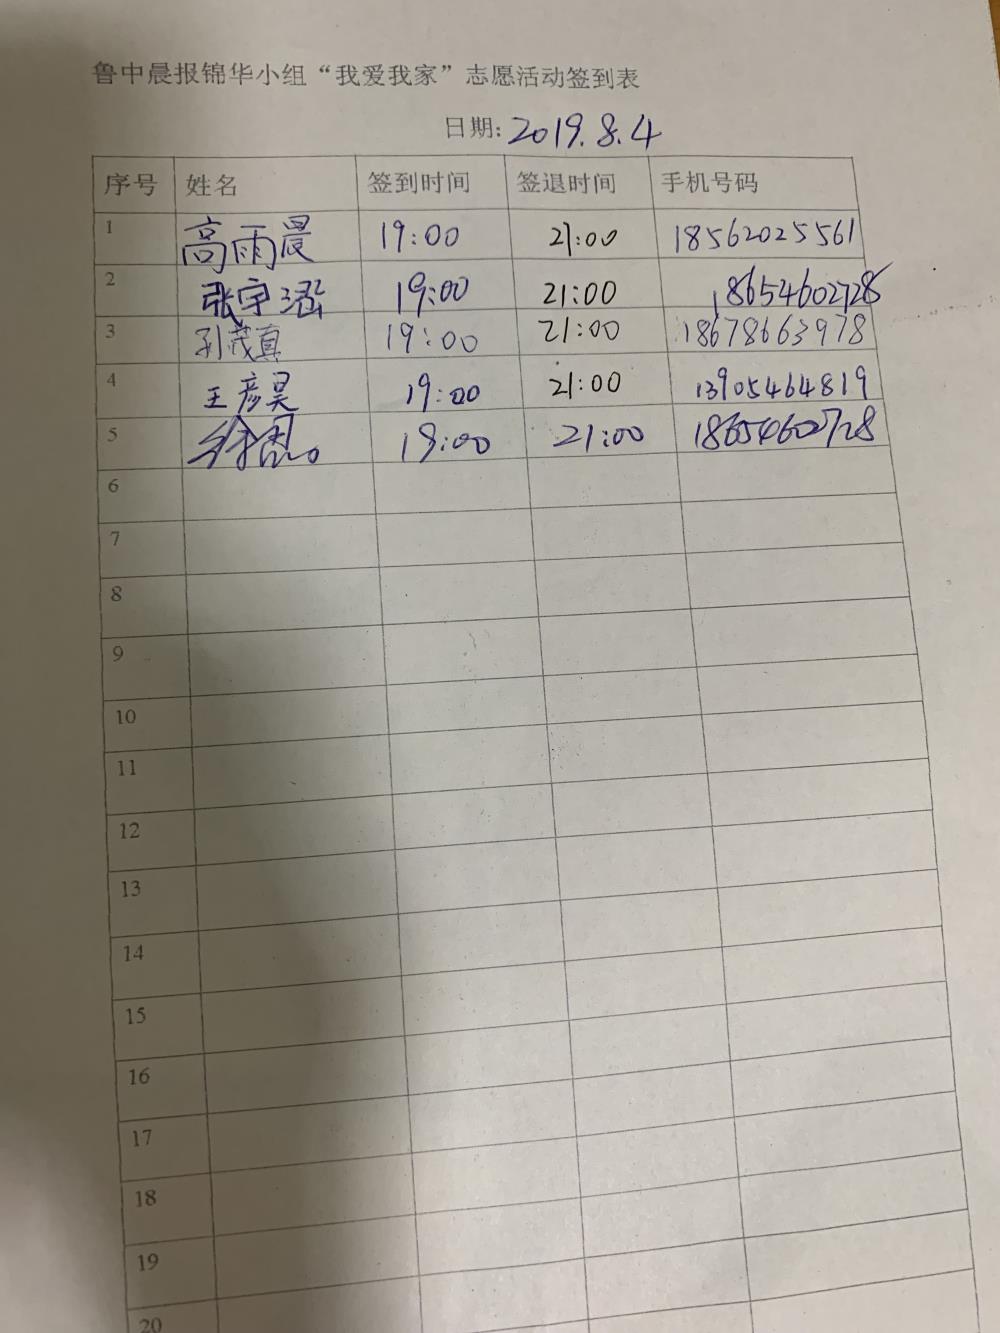 鲁中晨报锦华小组“我爱我家”志愿活动签到表
日期: 2019.8.4
序号 姓名 签到时间 签退时间 手机号码
1 高雨晨 19:00 21:00 18562025561
2 张宇涵 19:00 21:00 18654602728
3 孙茂真 19:00 21:00 18678663978
4 王彦昊 19:00 21:00 13905464819
5 19:00 21:00 18654602728
6
7
8
9
10
11
12
13
14
15
16
17
18
19
20